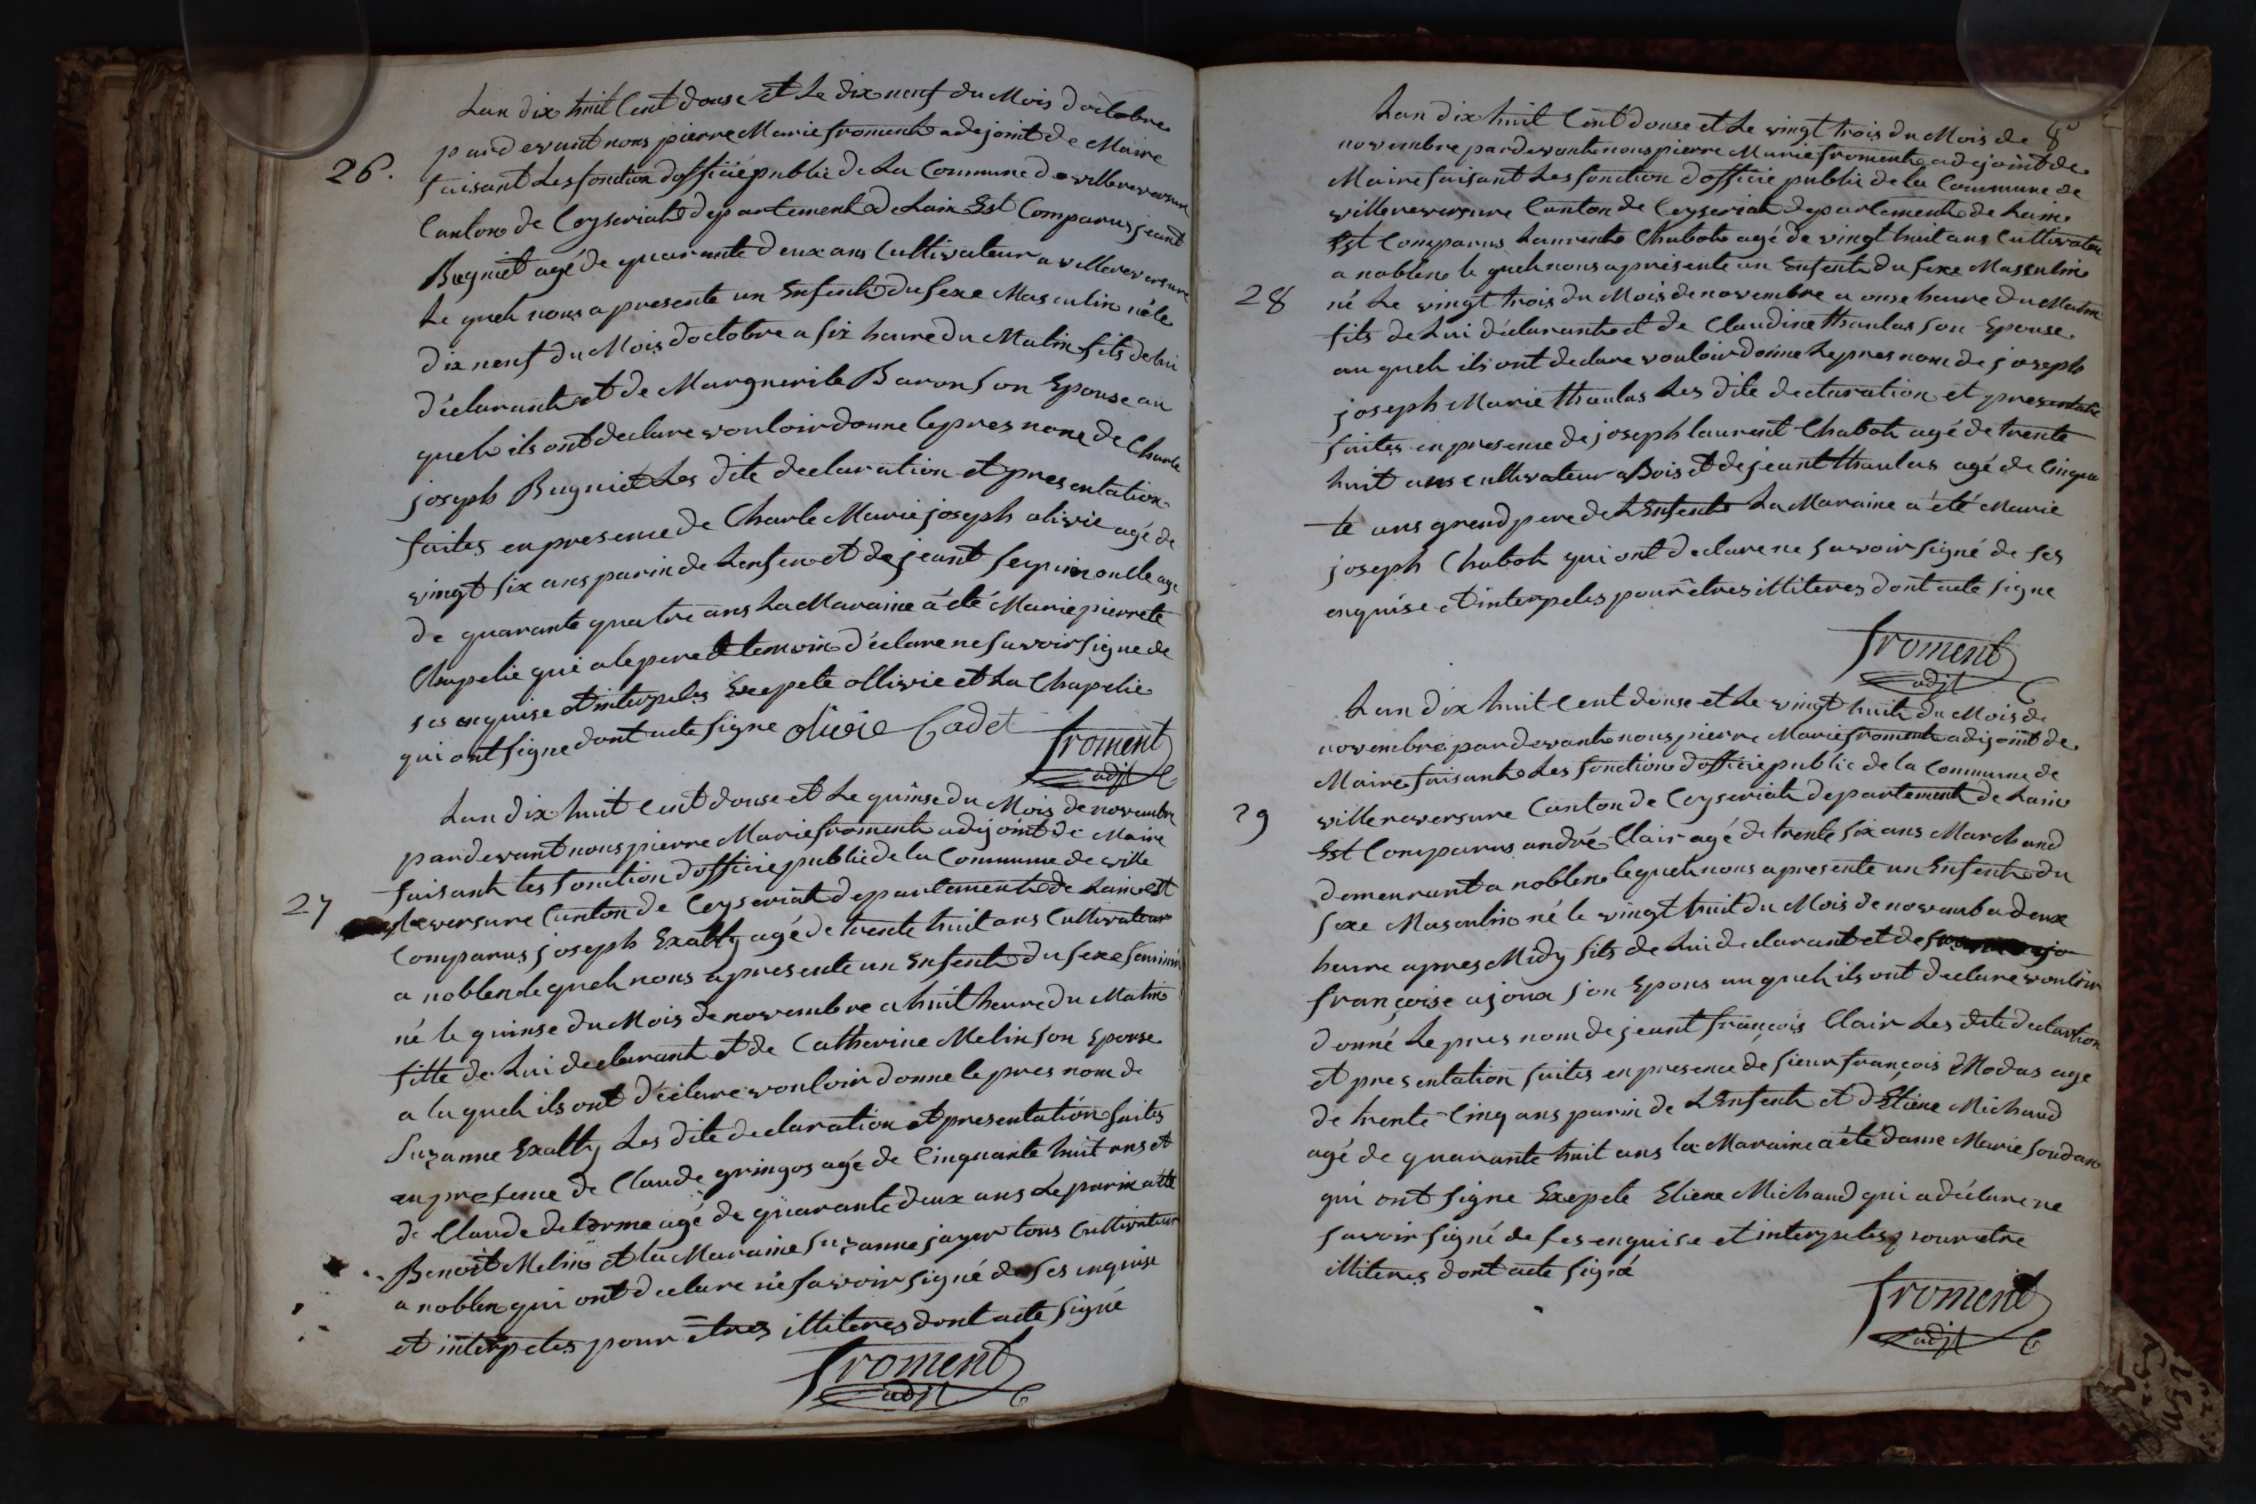 Lan dix huit Cent douse et Le dix neuf du Mois doctobre
pardevant nous pierre Marie froment adejoint de Maire
26.
faisant Les fonction dofficié public de La Commune de villereversure
Canton de Ceyseriat departement de Lain Est Comparus jeant
Bugniet agé de quarante deux ans Cultivateur a villereversure
Le quel nous a presente un Enfent du sexe Masculin né le
dix neuf du Mois doctobre a six heure du Matin fils de lui
déclarant et de Marguerite Baron son Epouse au
quel ils ont declare vouloir donne le pres nome de Charle
joseph Bugniet Les dite declaration et presentation
faites en presence de Charle Marie joseph olivie agé de
vingt six ans parin de Lenfen et de jeant age
de quarante quatre ans La Maraine a été Marie pierrete
Chapelie qui a le pere et temoin déclare ne savoir signe de
ses enquise et interpeles Exepete ollivie et La Chapelie
qui ont signe dont acte signe olivie Cadet froment
adjt
Lan dix huit Cent douse et Le quinse du Mois de novembre
pardevant nous pierre Marie froment adejoint de Maire
faisant les fonction dofficié public de la Commune de ville
27
reversure Canton de Ceyseriat departement de Lain est
Comparus joseph Exally agé de trente huit ans Cultivateur
a noblen le quel nous a presente un Enfent du sexe feminin
né le quinse du Mois de novembre a huit heure du Matin
fille de Lui declarant et de Catherine Melin son Epouse
a la quel ils ont déclare vouloir donne le pres nom de
Suzanne Exally Les dite declaration et presentation faites
en presence de Claude gringos agé de Cinquante huit ans et
de Claude delorme agé de quarante deux ans Le parin a été
Benoit Melin et la Maraine Suzanne jayer tous Cultivateur
a noblen qui ont declare ne savoir signé de ses enquise
et interpeles pour êtres illiteres dont acte signé
froment
adjt
Lan dix huit Cent douse et Le vingt trois du Mois de
novembre pardevant nous pierre Marie froment adejoint de
Maire faisant Les fonction dofficié public de la Commune de
villereversure Canton de Ceyseriat departement de Lain
Est Comparus Laurent Chabot agé de vingt huit ans Cultivateu
a noblen le quel nous a presente un Enfent du sexe Masculin
28
né Le vingt trois du Mois de novembre a onse heure du Matin
fils de Lui déclarant et de Claudine thaulas son Epouse
au quel ils ont declare vouloir donne Le pres nom de joseph
joseph Marie thaulas Les dite declaration et presentatie
faites en presence de joseph laurent Chabot agé de trente
huit ans Cultivateur a Bois et de jeant thaulas agé de Cinqua
te ans grend pere de LEnfent La Maraine a été Marie
joseph Chabot qui ont declare ne savoir signé de ses
enquise et interpeles pour êtres illiteres dont acte signe
froment
adjt
Lan dix huit Cent douse et Le vingt huit du Mois de
novembre pardevant nous pierre Marie froment adejoint de
Maire faisant Les fonction dofficié public de la Commune de
29
villereversure Canton de Ceyseriat departement de Lain
Est Comparus andré Clair agé de trente six ans Marchand
demeurant a noblen le quel nous a presente un Enfent du
sexe Masculin né le vingt huit du Mois de novemb a deux
heure apres Midy fils de Lui declarant et de
françoise ajoux son Epous au quel ils ont declare vouloir
donné Le pres nom de jeant françois Clair Les dite declartion
et presentation faites en presence de sieur françois Modas age
de trente Cinq ans parin de LEnfent et dEtiene Michaud
agé de quarante huit ans la Maraine a été dame Marie soudan
qui ont signe Exepete Etiene Michaud qui a déclare ne
savoir signé de ses enquise et interpeles pour etre
illiteres dont acte signé
froment
adjt